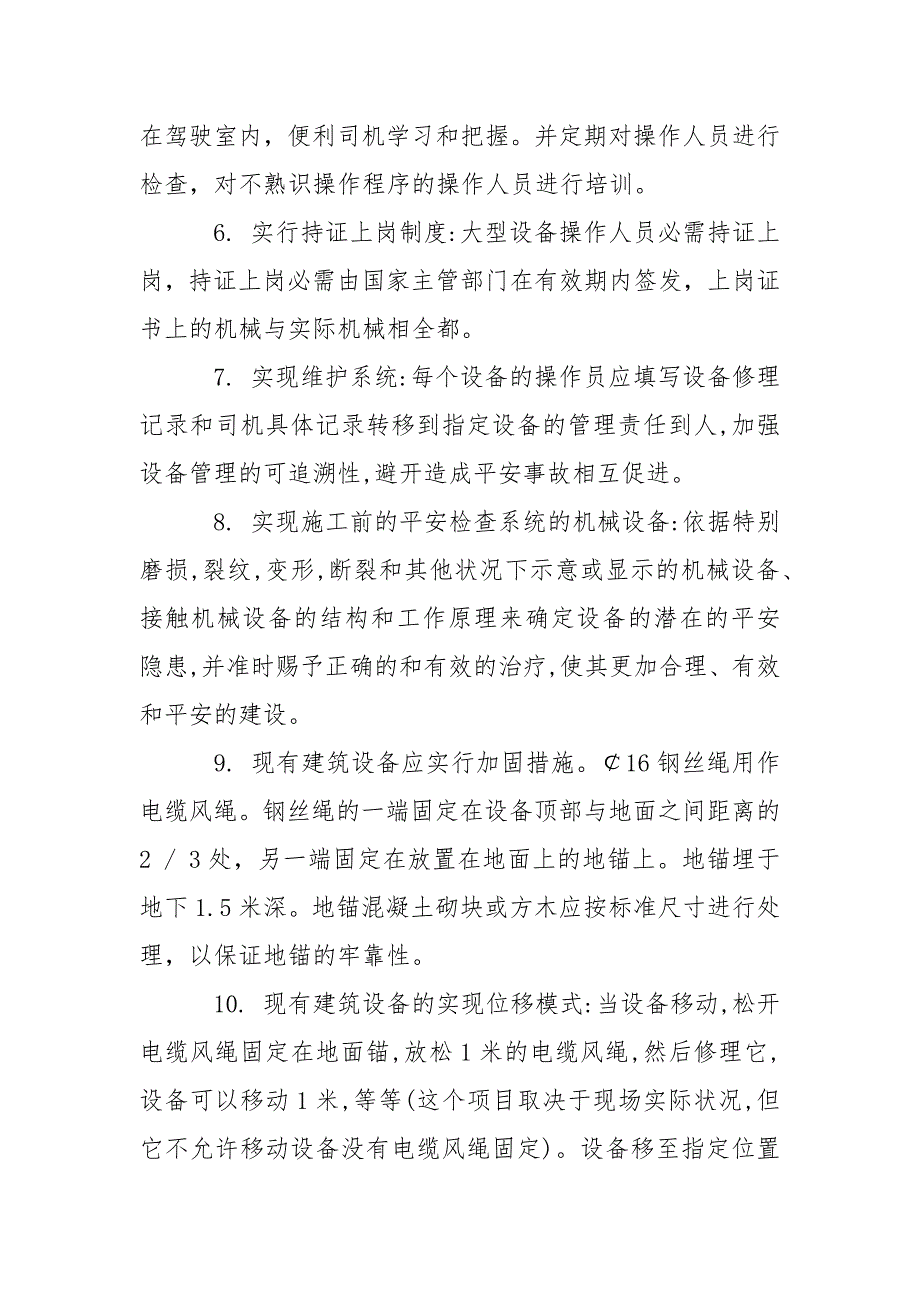 在驾驶室内，便利司机学习和把握。并定期对操作人员进行
检查，对不熟识操作程序的操作人员进行培训。
6. 实行持证上岗制度:大型设备操作人员必需持证上
岗，持证上岗必需由国家主管部门在有效期内签发，上岗证
书上的机械与实际机械相全都。
7. 实现维护系统:每个设备的操作员应填写设备修理
记录和司机具体记录转移到指定设备的管理责任到人,加强
设备管理的可追溯性,避开造成平安事故相互促进。
8. 实现施工前的平安检查系统的机械设备:依据特别
磨损,裂纹,变形,断裂和其他状况下示意或显示的机械设备、
接触机械设备的结构和工作原理来确定设备的潜在的平安
隐患,并准时赐予正确的和有效的治疗,使其更加合理、有效
和平安的建设。
9. 现有建筑设备应实行加固措施。¢16 钢丝绳用作
电缆风绳。钢丝绳的一端固定在设备顶部与地面之间距离的
2 / 3处，另一端固定在放置在地面上的地锚上。地锚埋于
地下1.5米深。地锚混凝土砌块或方木应按标准尺寸进行处
理，以保证地锚的牢靠性。
10. 现有建筑设备的实现位移模式:当设备移动,松开
电缆风绳固定在地面锚,放松1米的电缆风绳,然后修理它,
设备可以移动1米,等等(这个项目取决于现场实际状况,但
它不允许移动设备没有电缆风绳固定)。设备移至指定位置